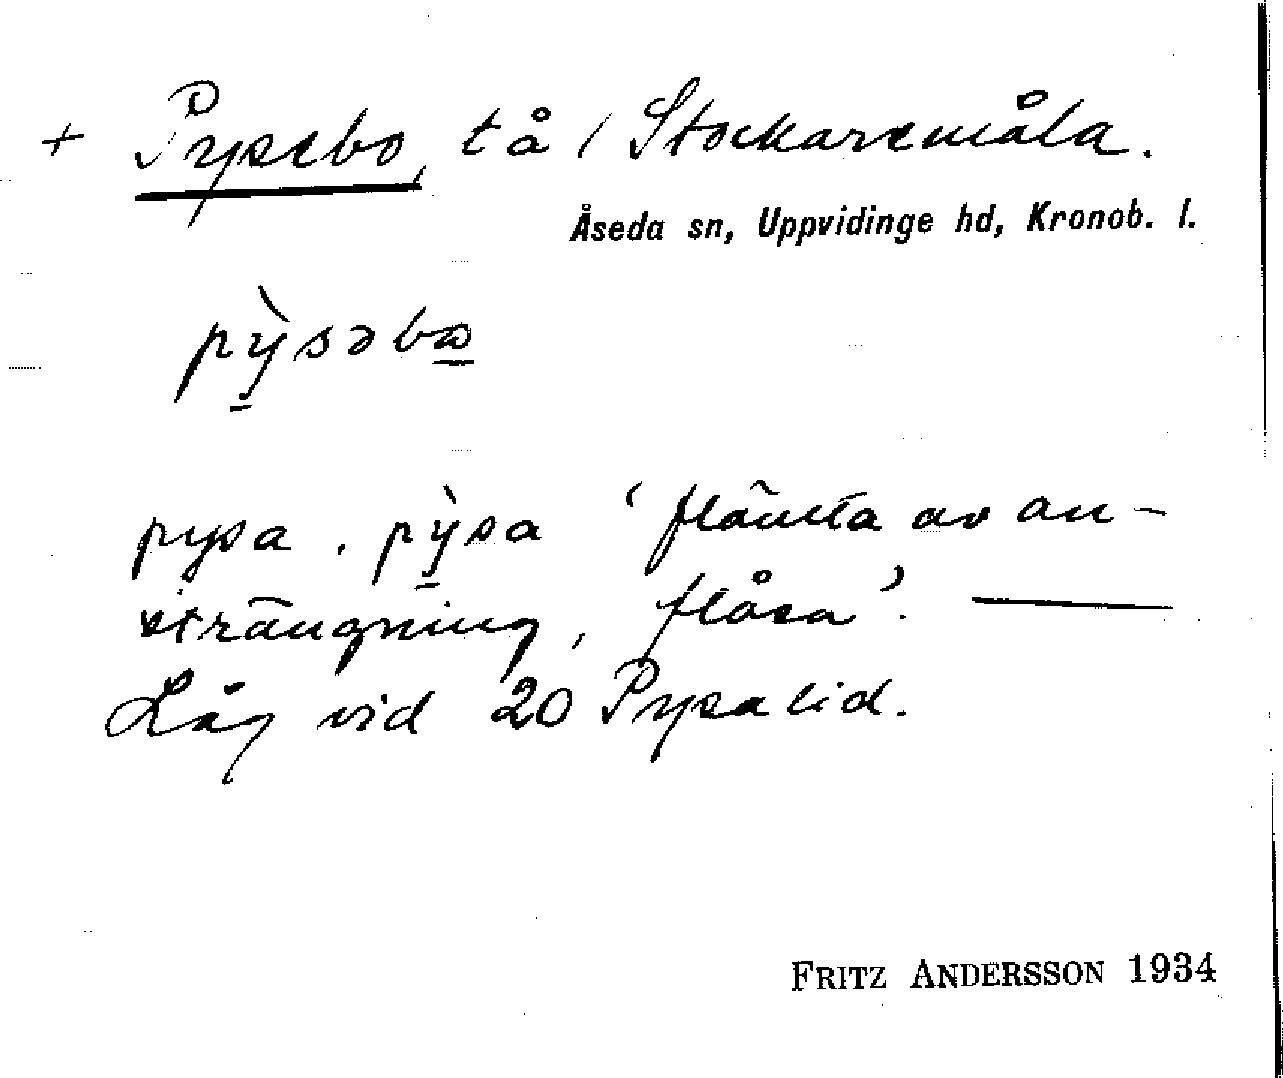 + Pysebo, tå / Stockaremåla.
Åseda sn, Uppvidinge hd, Kronob. l.
pỳsəbω
pysa. pỳsa ‘flämta av an-
strängning, flåsa’. —
Låg vid 20 Pysalid.
FRITZ ANDERSSON 1934